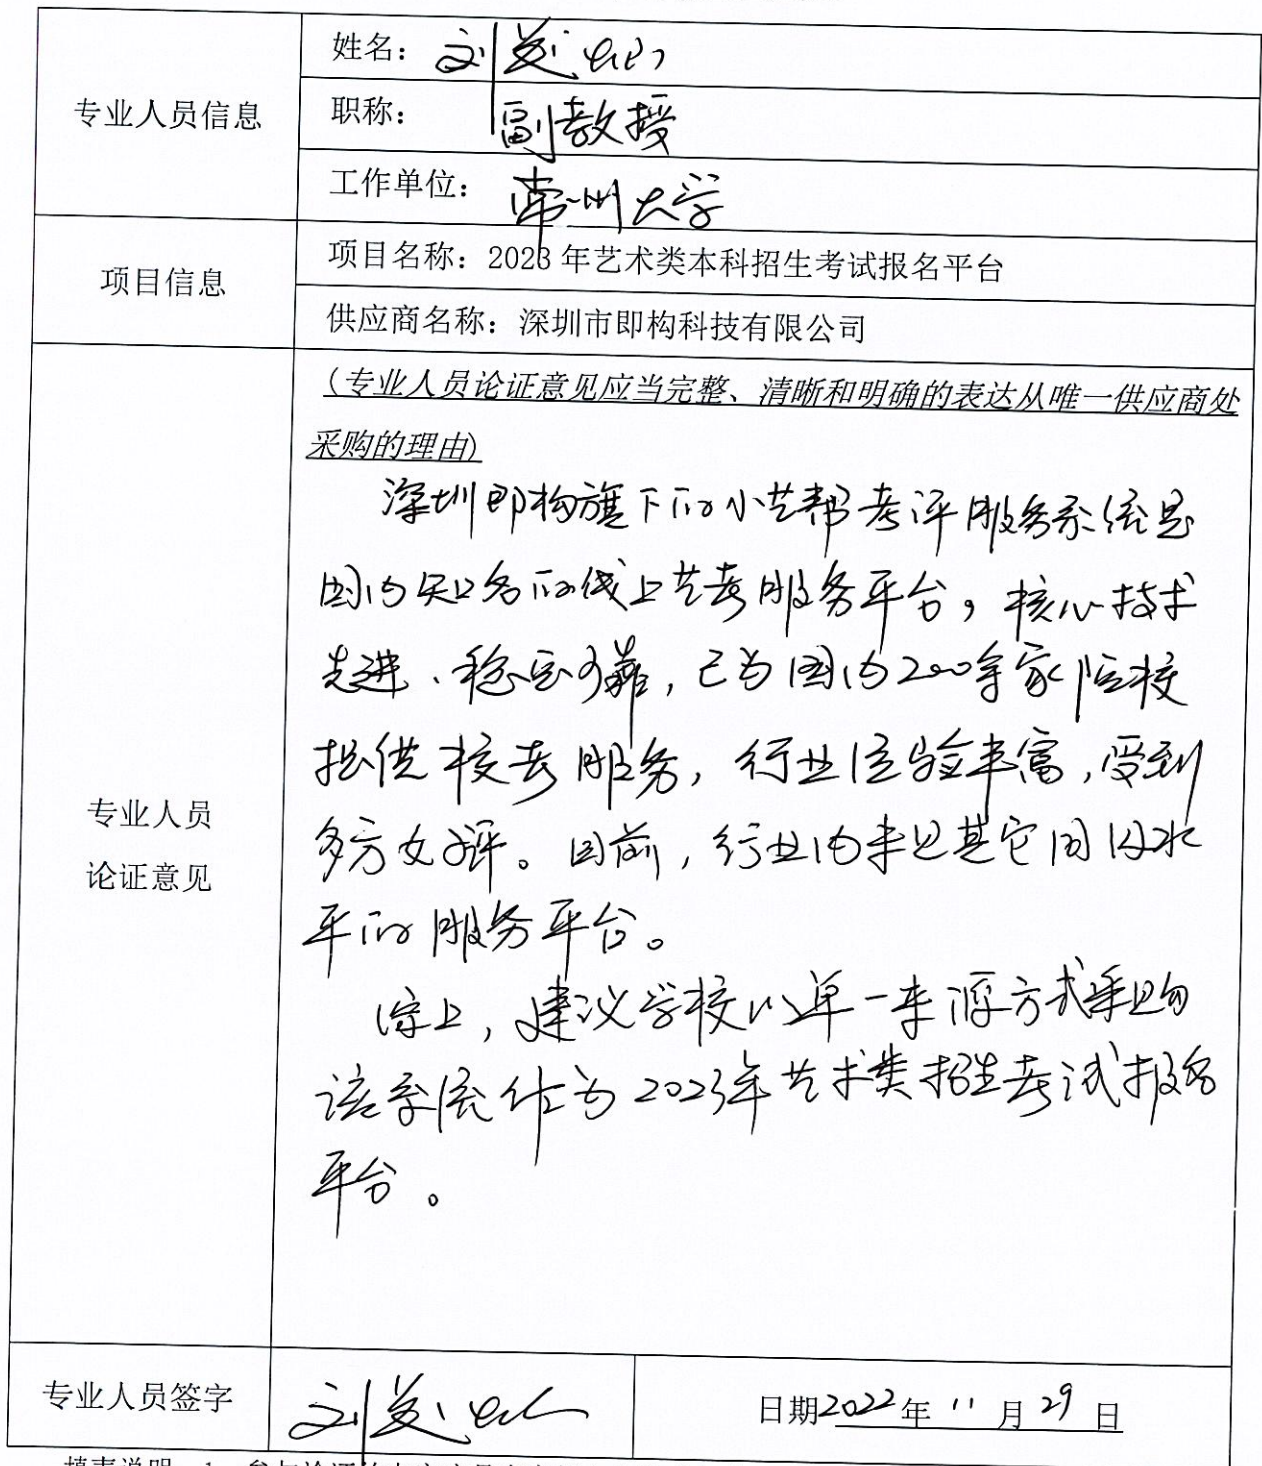 姓名：刘
专业人员信息
职称：副教授
工作单位：常州大学
项目信息
项目名称：2023年艺术类本科招生考试报名平台
供应商名称：深圳市即构科技有限公司
（专业人员论证意见应当完整、清晰和明确的表达从唯一供应商处
采购的理由）
深圳即构旗下的小艺帮考评服务系统是
国内知名的线上艺考服务平台，核心技术
先进、稳定可靠，已为国内200余家院校
提供校考服务，行业经验丰富，受到
多方好评。目前，行业内未见其它同等水
平的服务平台。
综上，建议学校以单一来源方式采购
该系统作为2023年艺术类招生考试报名
平台。
专业人员
论证意见
专业人员签字
刘
日期2022年11月29日
填表说明：1.